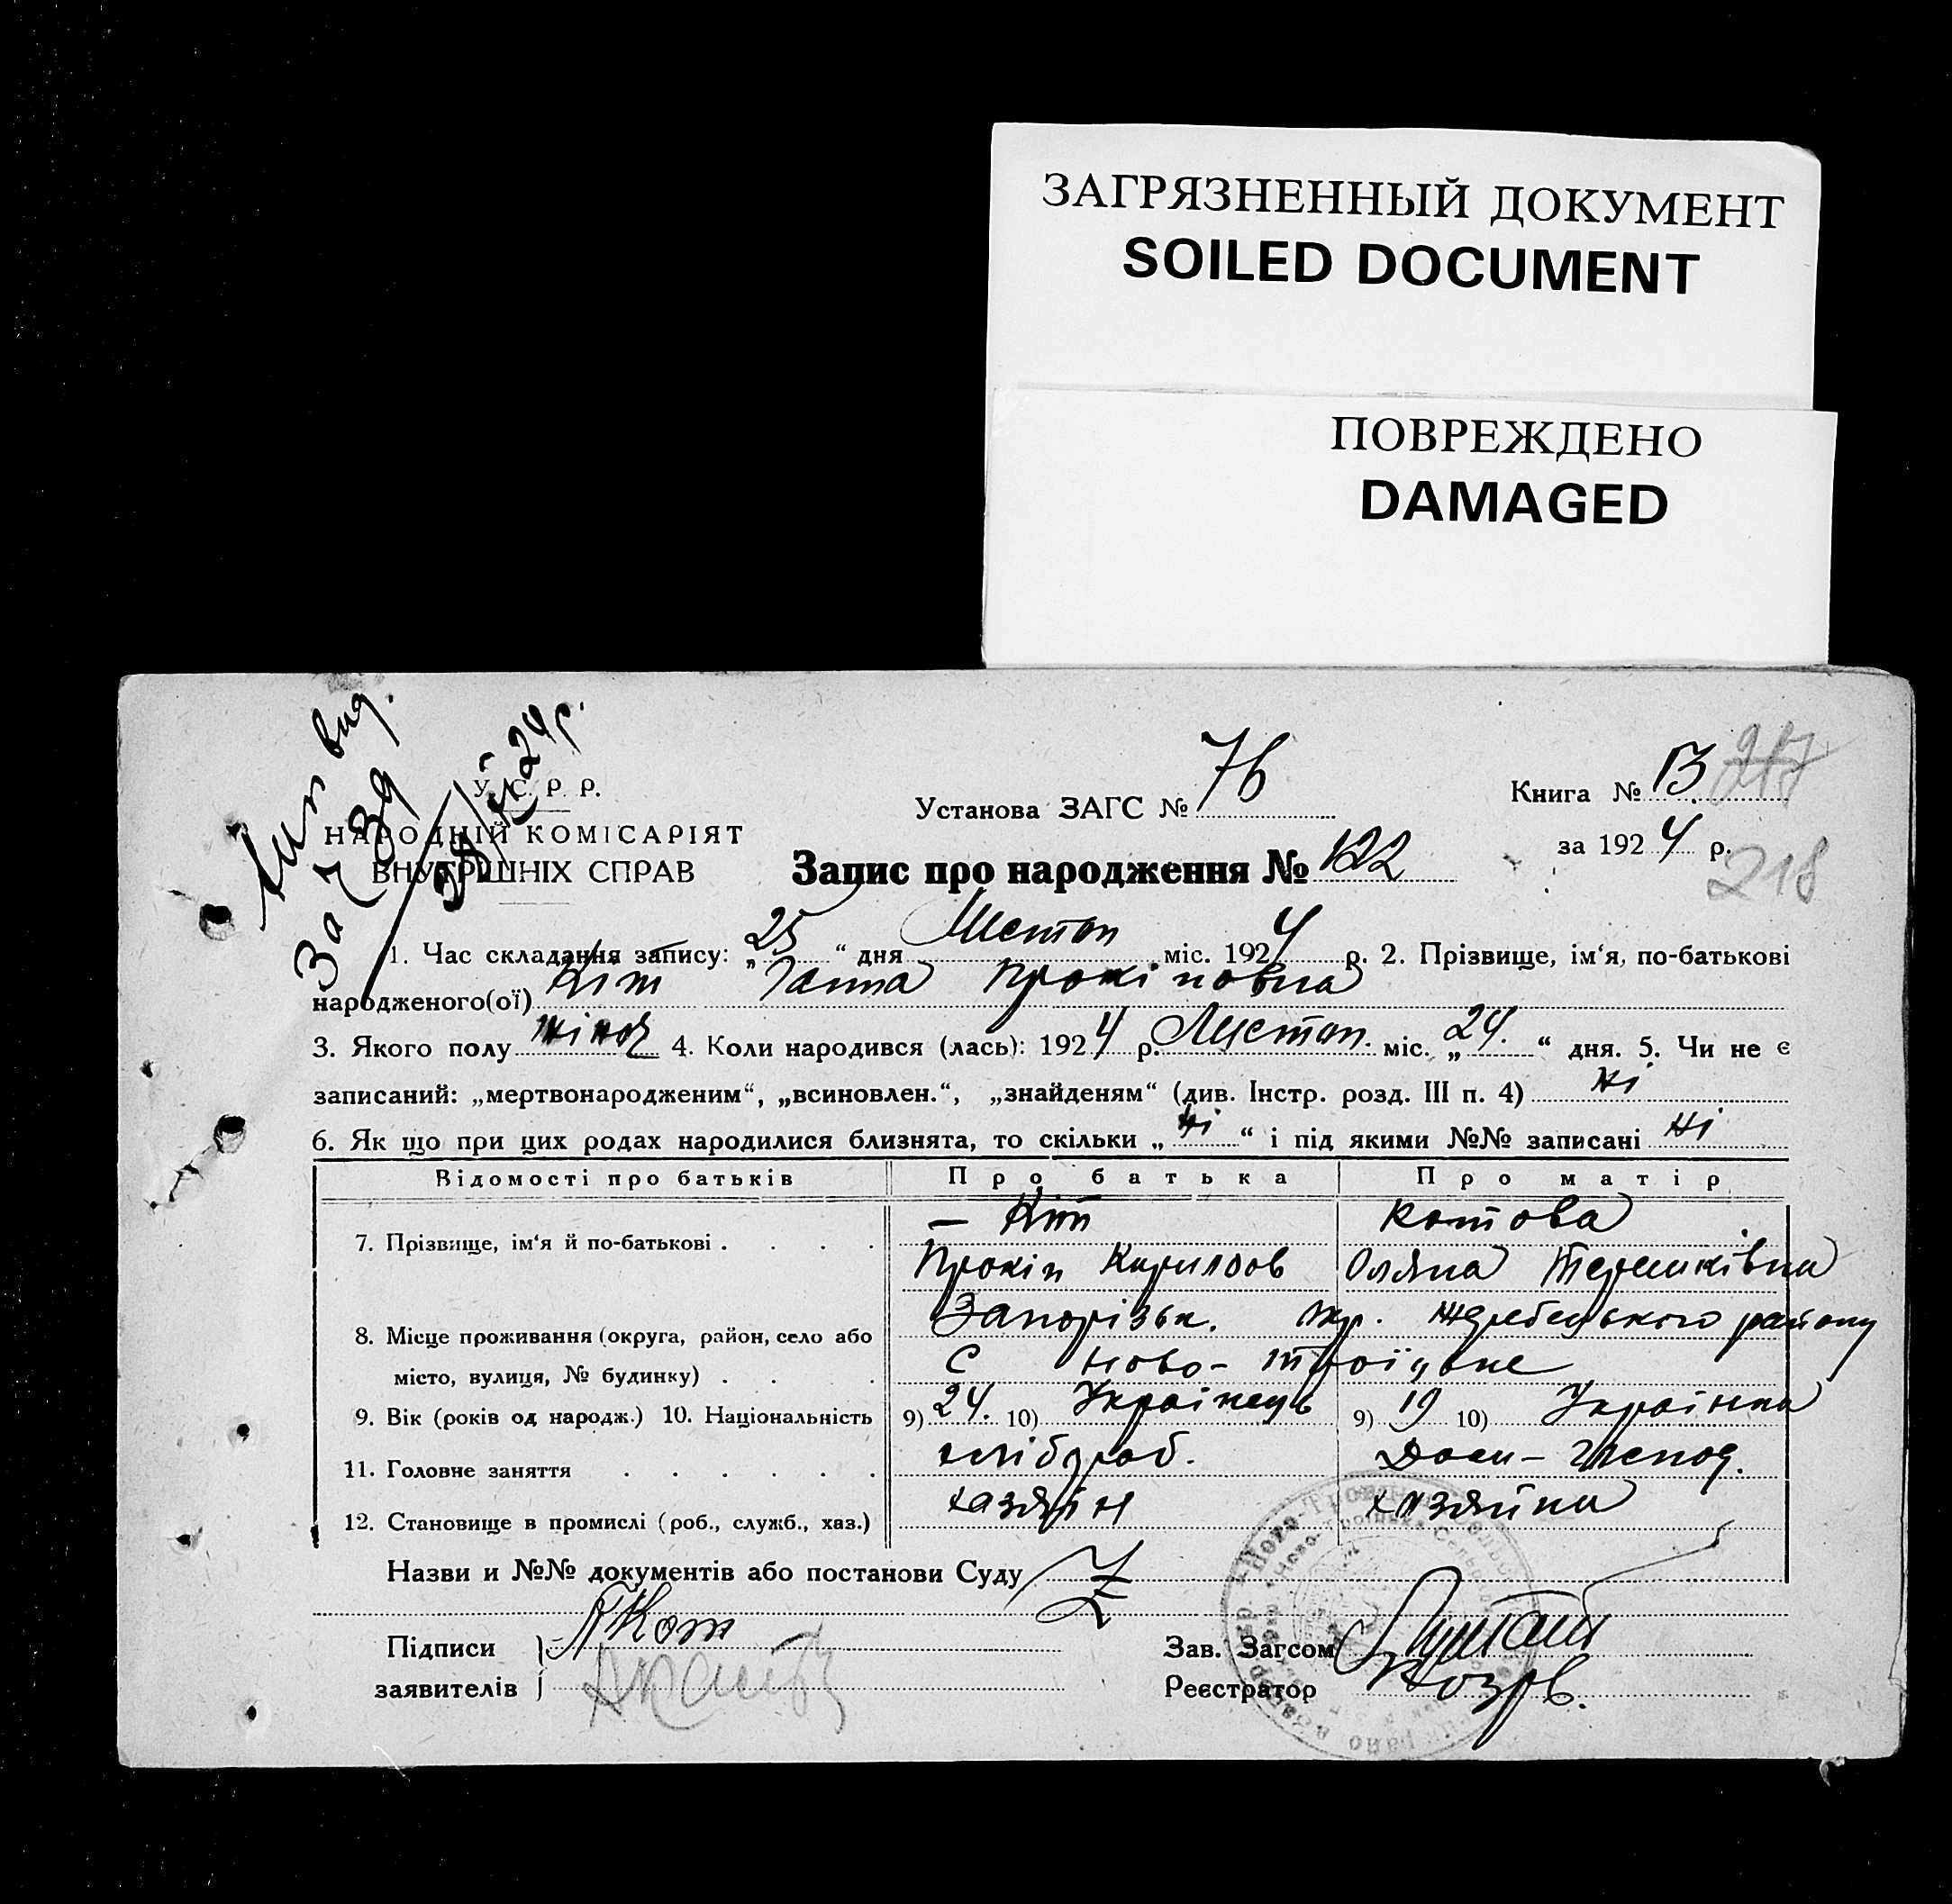 ЗАГРЯЗНЕННЫЙ ДОКУМЕНТ
SOILED DOCUMENT
ПОВРЕЖДЕНО
DAMAGED
вид.
За
24 р.
У. С. Р. Р.
НАРОДНІЙ КОМІСАРІЯТ
ВНУТРІШНІХ СПРАВ
Установа ЗАГС № 76
Книга № 13 217
за 1924 р.
218
Запис про народження № 122
1. Час складання запису: „25“ дня Листоп міс. 1924 р. 2. Прізвище, ім‘я, по-батькові
народженого(ої) Кіт Ганна Прокіповна
3. Якого полу жіноч 4. Коли народився (лась): 1924 р. Листоп. міс. „24.“ дня. 5. Чи не є
записаний: „мертвонародженим“, „всиновлен.“, „знайденям“ (див. Інстр. розд. III п. 4) ні
6. Як що при цих родах народилися близнята, то скільки „ні“ і під якими №№ записані ні
Відомості про батьків Про батька Про матір
7. Прізвище, ім‘я й по-батькові . . . . — Кіт Котова
Прокіп Кирилов Оляна Терешківна
8. Місце проживання (округа, район, село або Запорізьк. окр. Жеребецького району
місто, вулиця, № будинку) . . . С Ново-Троїцьке
9. Вік (років од народж.) 10. Національність 9) 24. 10) Українець 9) 19 10) Українка
11. Головне заняття . . . . . . хлібороб. Дом-господ.
12. Становище в промислі (роб., служб., хаз.) хазяін хазяйка
Назви и №№ документів або постанови Суду Z
Підписи Кот
заявителів
Зав. Загсом
Реєстратор